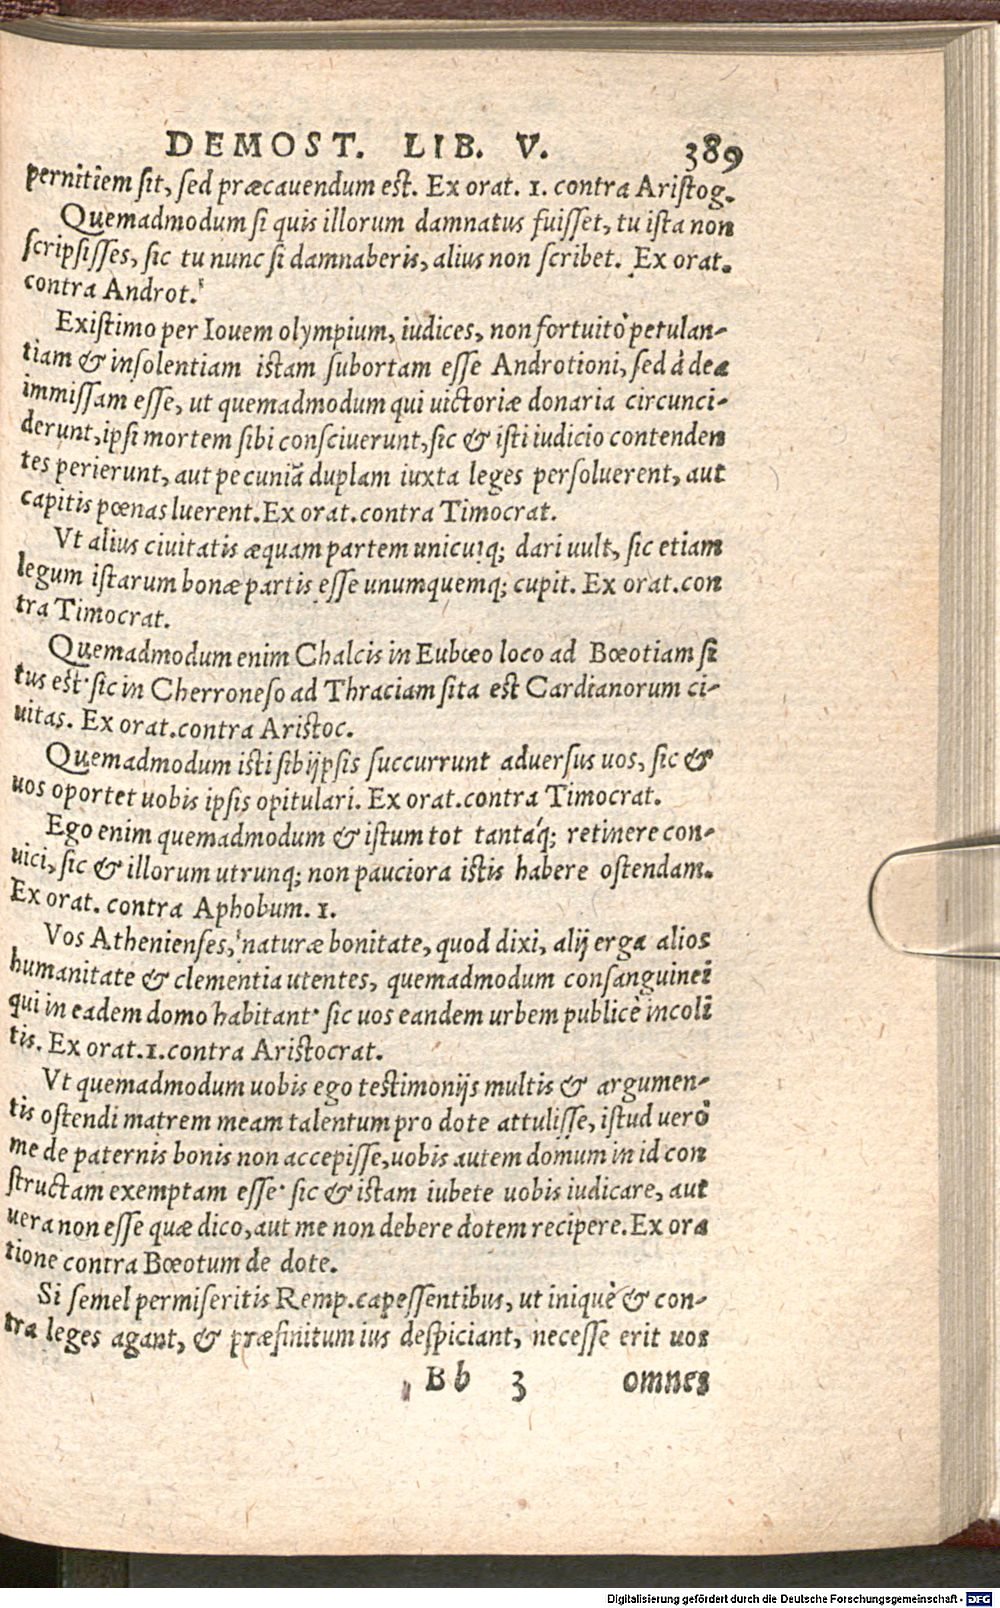 DEMOST. LIB. V. 389
pernitiem sit, sed præcauendum est. Ex orat. 1. contra Aristog.
Quemadmodum si quis illorum damnatus fuisset, tu ista non
scripsisses, sic tu nunc si damnaberis, alius non scribet. Ex orat.
contra Androt.
Existimo per Iouem olympium, iudices, non fortuitò petulan-
tiam & insolentiam istam subortam esse Androtioni, sed à dea
immissam esse, ut quemadmodum qui uictoriæ donaria circunci-
derunt, ipsi mortem sibi consciuerunt, sic & isti iudicio contenden
tes perierunt, aut pecuniã duplam iuxta leges persoluerent, aut
capitis pœnas luerent. Ex orat. contra Timocrat.
Vt alius ciuitatis æquam partem unicuiq; dari uult, sic etiam
legum istarum bonæ partis esse unumquemq; cupit. Ex orat. con
tra Timocrat.
Quemadmodum enim Chalcis in Eubœo loco ad Bœotiam si
tus est· sic in Cherroneso ad Thraciam sita est Cardianorum ci-
uitas. Ex orat. contra Aristoc.
Quemadmodum isti sibijpsis succurrunt aduersus uos, sic &
uos oportet uobis ipsis opitulari. Ex orat. contra Timocrat.
Ego enim quemadmodum & istum tot tantáq; retinere con-
uici, sic & illorum utrunq; non pauciora istis habere ostendam.
Ex orat. contra Aphobum. 1.
Vos Athenienses, naturæ bonitate, quod dixi, alij erga alios
humanitate & clementia utentes, quemadmodum consanguinei
qui in eadem domo habitant· sic uos eandem urbem publicè incoli
tis. Ex orat. 1. contra Aristocrat.
Vt quemadmodum uobis ego testimonijs multis & argumen-
tis ostendi matrem meam talentum pro dote attulisse, istud uerò
me de paternis bonis non accepisse, uobis autem domum in id con
structam exemptam esse· sic & istam iubete uobis iudicare, aut
uera non esse quæ dico, aut me non debere dotem recipere. Ex ora
tione contra Bœotum de dote.
Si semel permiseritis Remp. capessentibus, ut iniquè & con-
tra leges agant, & præfinitum ius despiciant, necesse erit uos
Bb 3 omnes
Digitalisierung gefördert durch die Deutsche Forschungsgemeinschaft - DFG